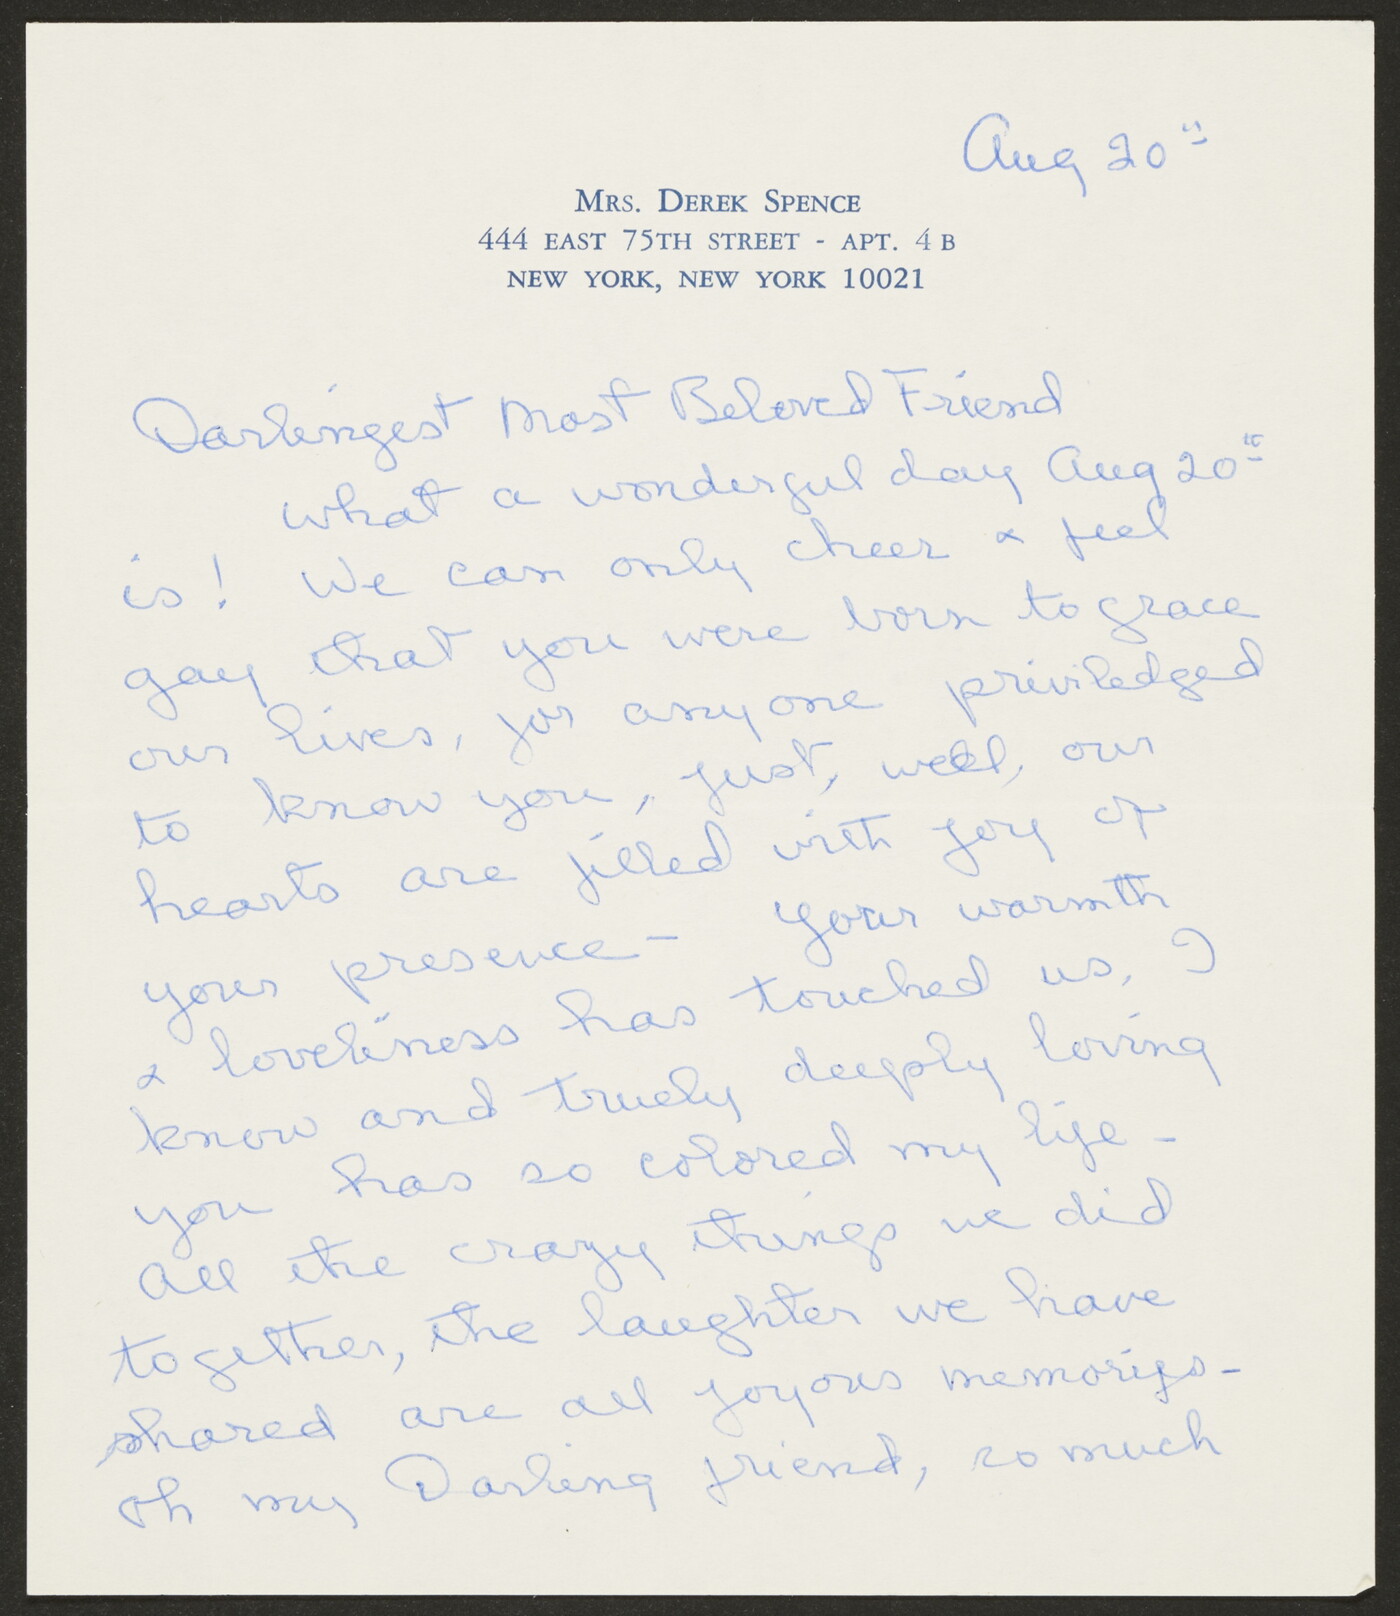 Aug 20th
MRS. DEREK SPENCE
444 EAST 75TH STREET - APT. 4 B
NEW YORK, NEW YORK 10021
Darlingest Most Beloved Friend
What a wonderful day Aug 20th
is! We can only cheer & feel
gay that you were born to grace
our lives, for anyone priviledged
to know you, just, well, our
hearts are filled with joy of
your presence - Your warmth
& loveliness has touched us, I
know and truely deeply loving
you has so colored my life -
All the crazy things we did
together, the laughter we have
shared are all joyous memories -
Oh my Darling friend, so much